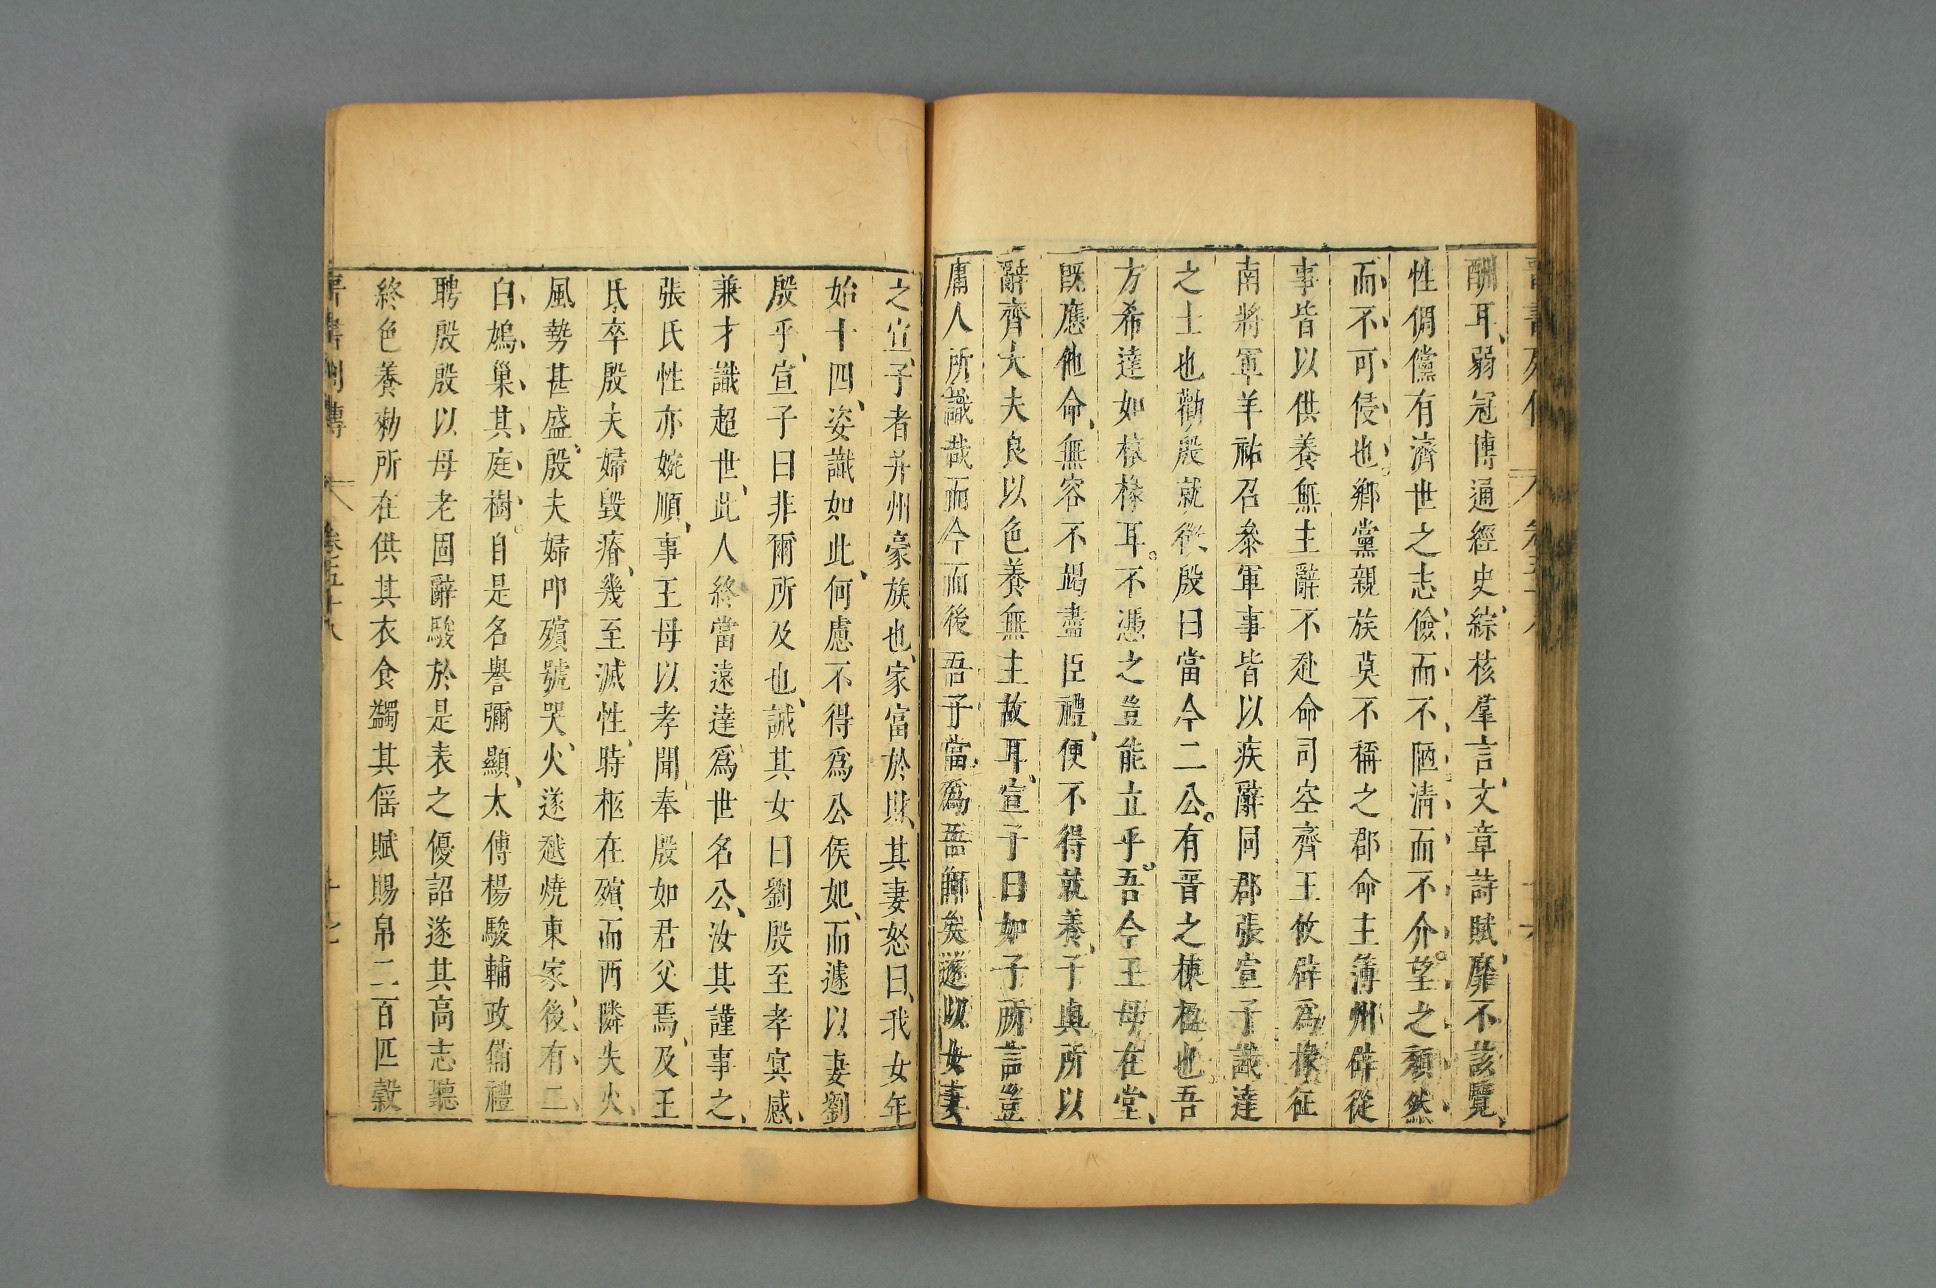 酬耳、弱冠博通經史、綜核羣言、文章詩賦、靡不該覽、
性倜儻有濟世之志、儉而不陋、淸而不介。望之頹然
而不可侵也。鄉黨親族莫不稱之郡命主簿州辟從
事皆以供養無主辭不赴命司空齊王攸辟爲掾征
南將軍羊祜召參軍事皆以疾辭同郡張宣子識達
之士也勸殷就徵殷曰當今二公。有晉之棟楹也。吾
方希達如榱椽耳。不憑之豈能立乎。吾今王母在堂、
旣應他命、無容不竭盡臣禮、便不得就養、子輿所以
辭齊大夫良以色養無主故耳、宣子曰如子所言豈
庸人所識哉而今而後吾子當爲吾師矣遂以女妻
之宣、子者幷州豪族也、家富於財、其妻怒曰、我女年
始十四、姿識如此、何慮不得爲公侯妃、而遽以妻劉
殷乎、宣子曰非爾所及也、誡其女曰劉殷至孝冥感、
兼才識超世、此人終當遠達爲世名公、汝其謹事之、
張氏性亦婉順、事王母以孝聞、奉殷如君父焉、及王
氏卒殷夫婦毀瘠、幾至滅性、時柩在殯、而西隣失火、
風勢甚盛、殷夫婦叩殯號哭、火遂越燒東家、後有二
白鳩巢其庭樹。自是名譽彌顯、太傅楊駿輔政備禮
聘殷殷以母老固辭駿於是表之優詔遂其高志聽
終色養勑所在供其衣食蠲其傜賦賜帛二百匹穀
晉書列傳 卷五十八 十七